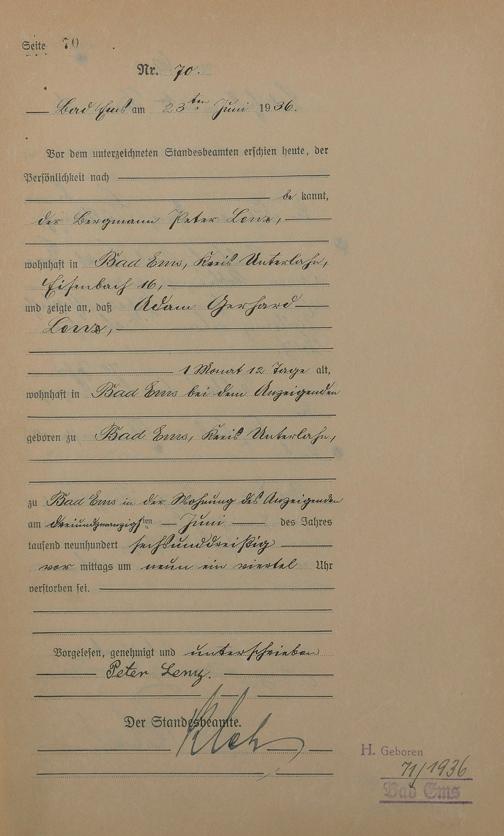 Seite 70
Nr. 70.
Bad Ems am 23ten Juni 1936.
Vor dem unterzeichneten Standesbeamten erschien heute, der
Persönlichkeit nach
be kannt,
der Bergmann Peter Lenz,
wohnhaft in Bad Ems, Kreis Unterlahn,
Eisenbach 16,
und zeigte an, daß Adam Gerhard
Lenz,
1 Monat 12 Tage alt,
wohnhaft in Bad Ems bei dem Anzeigenden
geboren zu Bad Ems, Kreis Unterlahn,
zu Bad Ems in der Wohnung des Anzeigenden
am dreiundzwanzigsten Juni des Jahres
tausend neunhundert sechsunddreißig
vor mittags um neun ein viertel Uhr
verstorben sei.
Vorgelesen, genehmigt und unterschrieben
Peter Lenz.
Der Standesbeamte.
H. Geboren
71/1936
Bad Ems